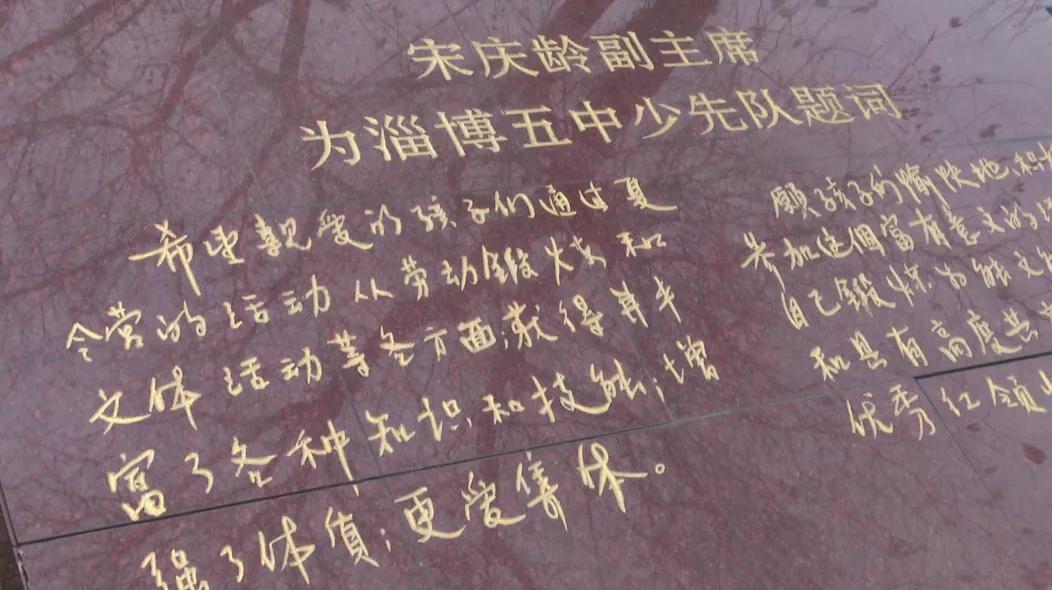 宋庆龄副主席
为淄博五中少先队题词
希望親爱的孩子们通过夏
令营的活动从劳动鍛炼和
文体活动等各方面;获得并丰
富了各种知识和技能;增
强了体質;更爱集体。
願孩子们愉快地、积
参加这個富有意义的活
自己鍛炼为能文能
和具有高度共
优秀红领巾